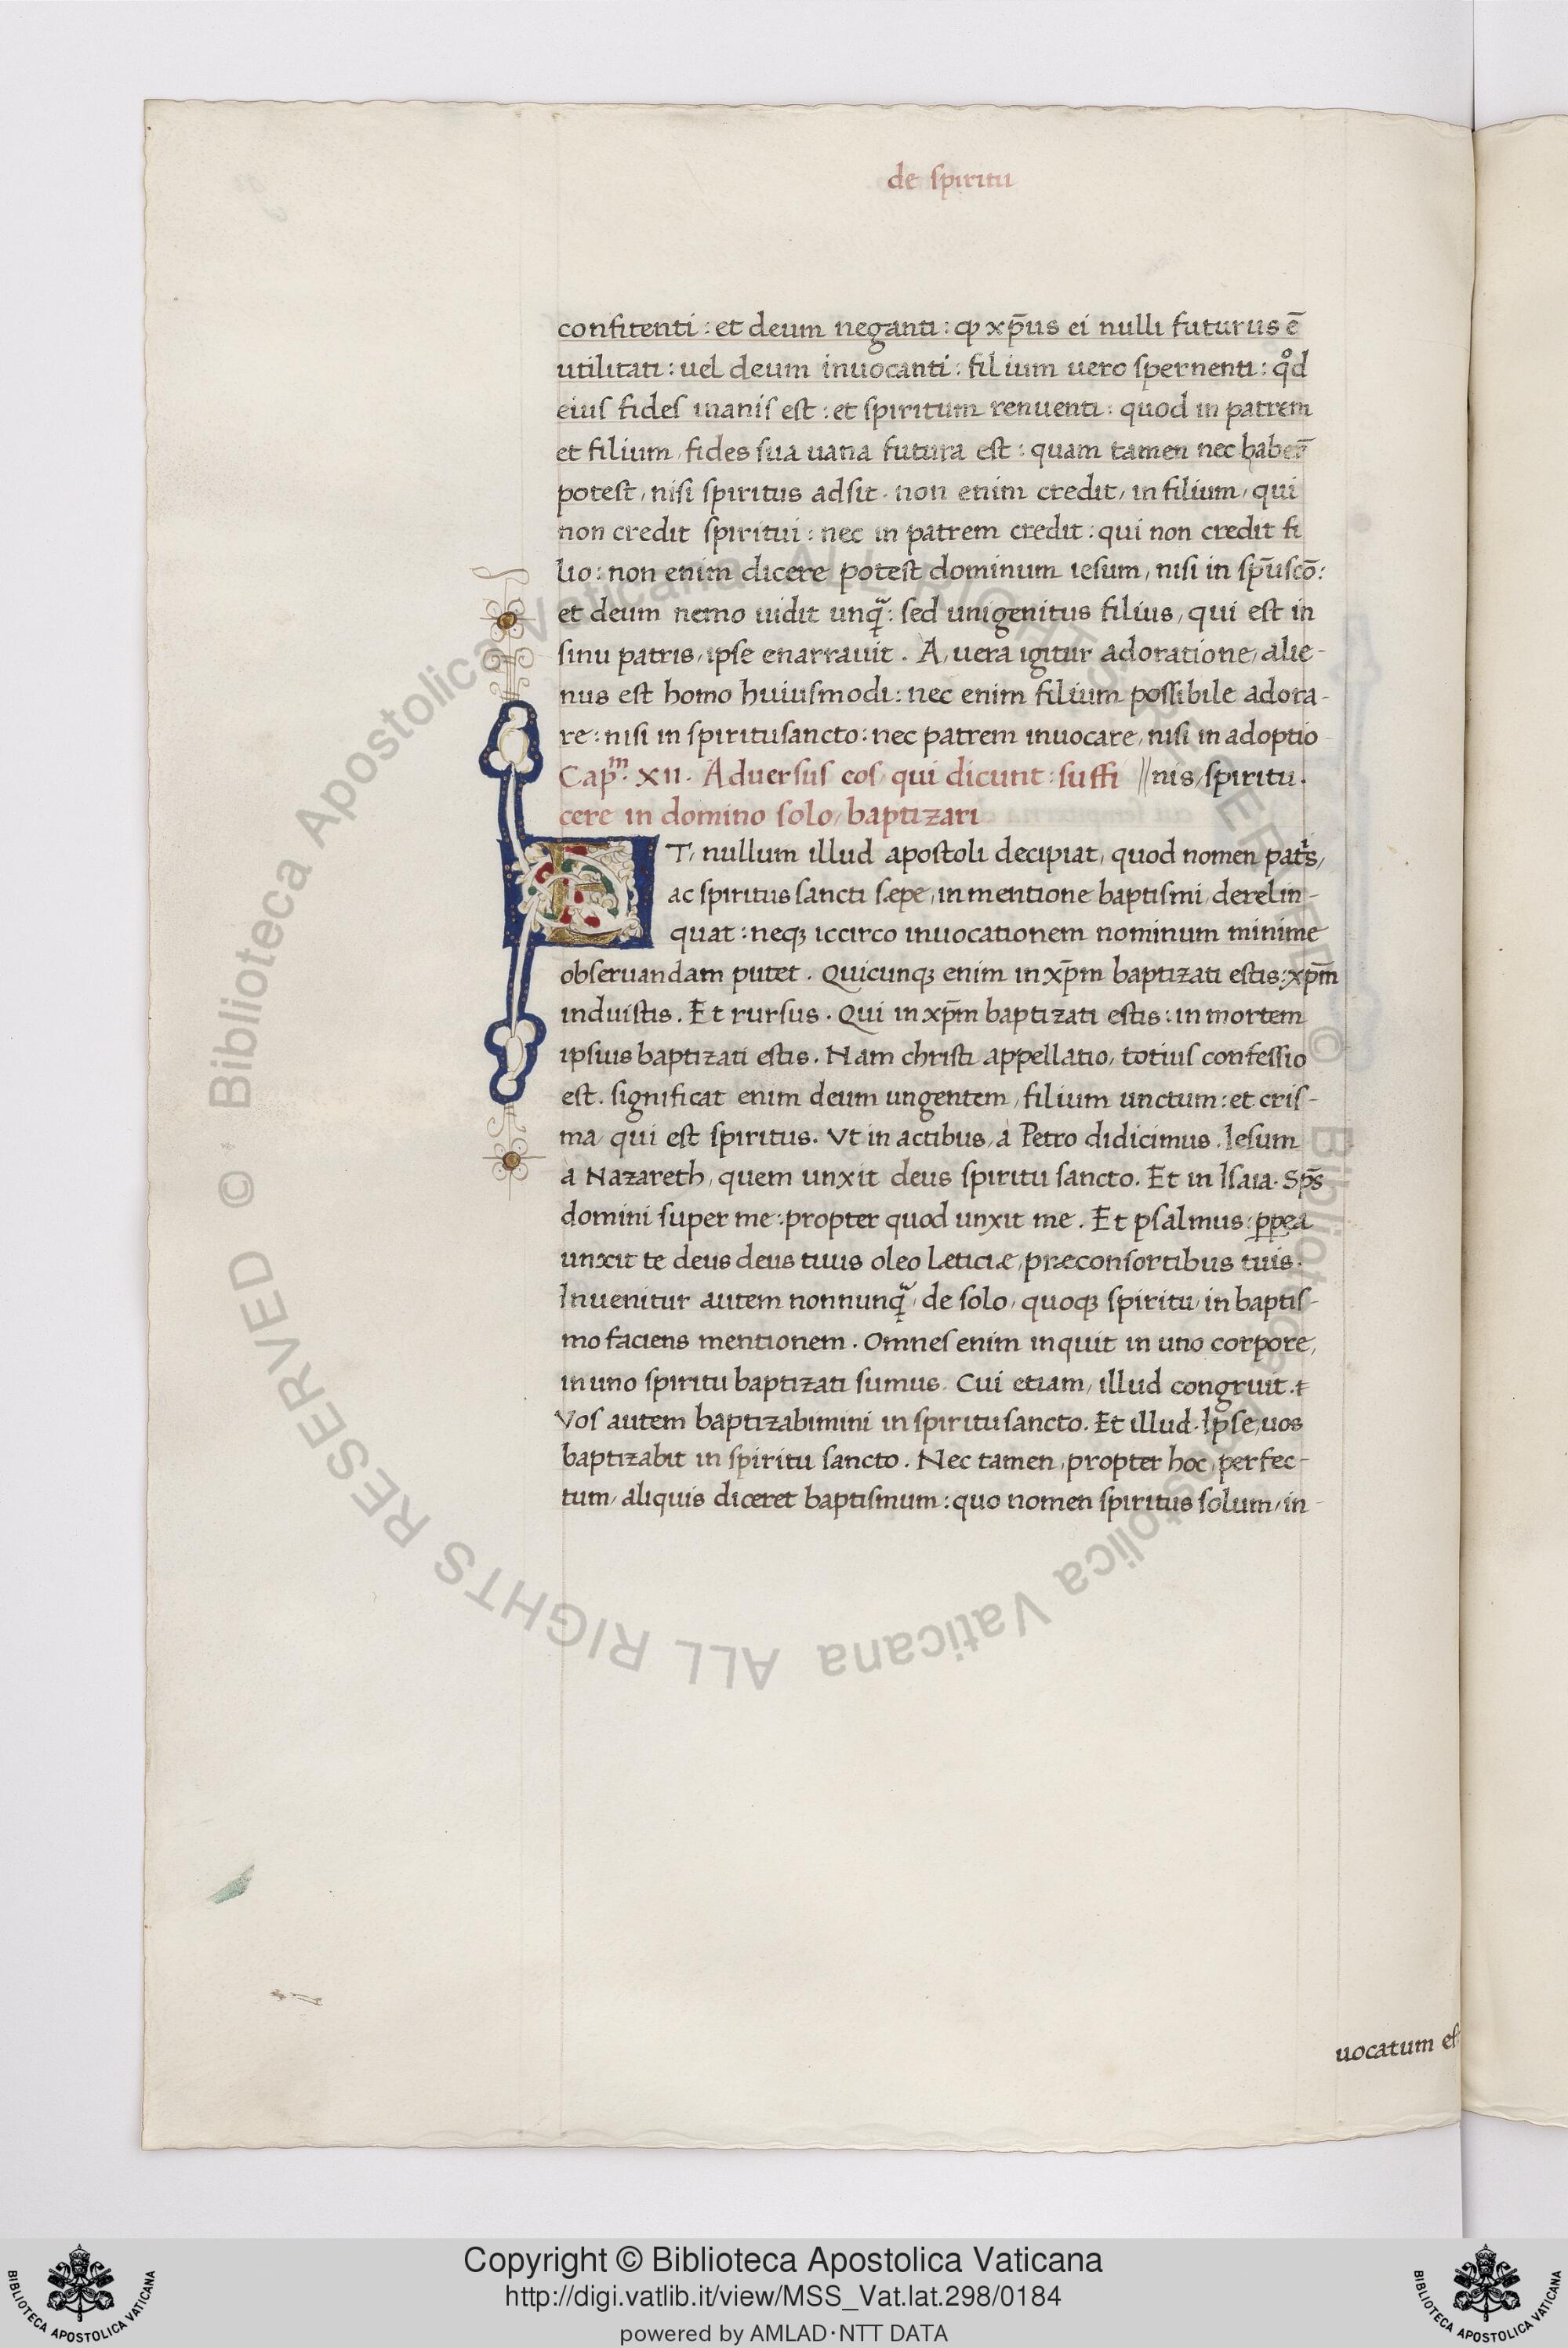 de spiritu
confitenti : et deum neganti : ꝙ xp̄us ei nulli futurus ē
utilitati : uel deum inuocanti : filium uero spernenti : qͦd
eius fides inanis est : et spiritum renuenti : quod in patrem
et filium, fides sua uana futura est : quam tamen nec haber̄
potest, nisi spiritus adsit. non enim credit, in filium, qui
non credit spiritui : nec in patrem credit : qui non credit fi
lio : non enim dicere potest dominum iesum, nisi in sp̄uscō :
et deum nemo uidit unqᷓ : sed unigenitus filius, qui est in
sinu patris, ipse enarrauit. A, uera igitur adoratione, alie-
nus est homo huiusmodi : nec enim filium possibile adora-
re : nisi in spiritusancto : nec patrem inuocare, nisi in adoptio
Capᵐ. XII. Aduersus eos, qui dicunt : suffi //nis, spiritu.
cere in domino solo, baptizari
ET, nullum illud apostoli decipiat, quod nomen patͥs,
ac spiritus sancti sæpe, in mentione baptismi, derelin-
quat : neqꝫ iccirco inuocationem nominum minime
obseruandam putet. Quicunqꝫ enim in xp̄m baptizati estis : xp̄m
induistis. Et rursus. Qui in xp̄m baptizati estis : in mortem
ipsius baptizati estis. Nam christi appellatio, totius confessio
est. significat enim deum ungentem, filium unctum : et cris-
ma, qui est spiritus. Vt in actibus, a Petro didicimus. Iesum
a Nazareth, quem unxit deus spiritu sancto. Et in Isaia. Sp̄s
domini super me : propter quod unxit me. Et psalmus : ꝓpea
unxit te deus deus tuus oleo letitiæ, præconsortibus tuis.
Inuenitur autem nonnunqᷓ, de solo, quoqꝫ spiritu, in baptis-
mo faciens mentionem. Omnes enim inquit in uno corpore,
in uno spiritu baptizati sumus. Cui etiam, illud congruit.
Vos autem baptizabimini in spiritusancto. Et illud. Ipse, uos
baptizabit in spiritu sancto. Nec tamen, propter hoc, perfec-
tum, aliquis diceret baptismum : quo nomen spiritus solum, in-
uocatum es
© Biblioteca Apostolica Vaticana ALL RIGHTS RESERVED
© Biblioteca Apostolica Vaticana ALL RIGHTS RESERVED
Copyright © Biblioteca Apostolica Vaticana
http://digi.vatlib.it/view/MSS_Vat.lat.298/0184
powered by AMLAD·NTT DATA
BIBLIOTECA APOSTOLICA VATICANA
BIBLIOTECA APOSTOLICA VATICANA